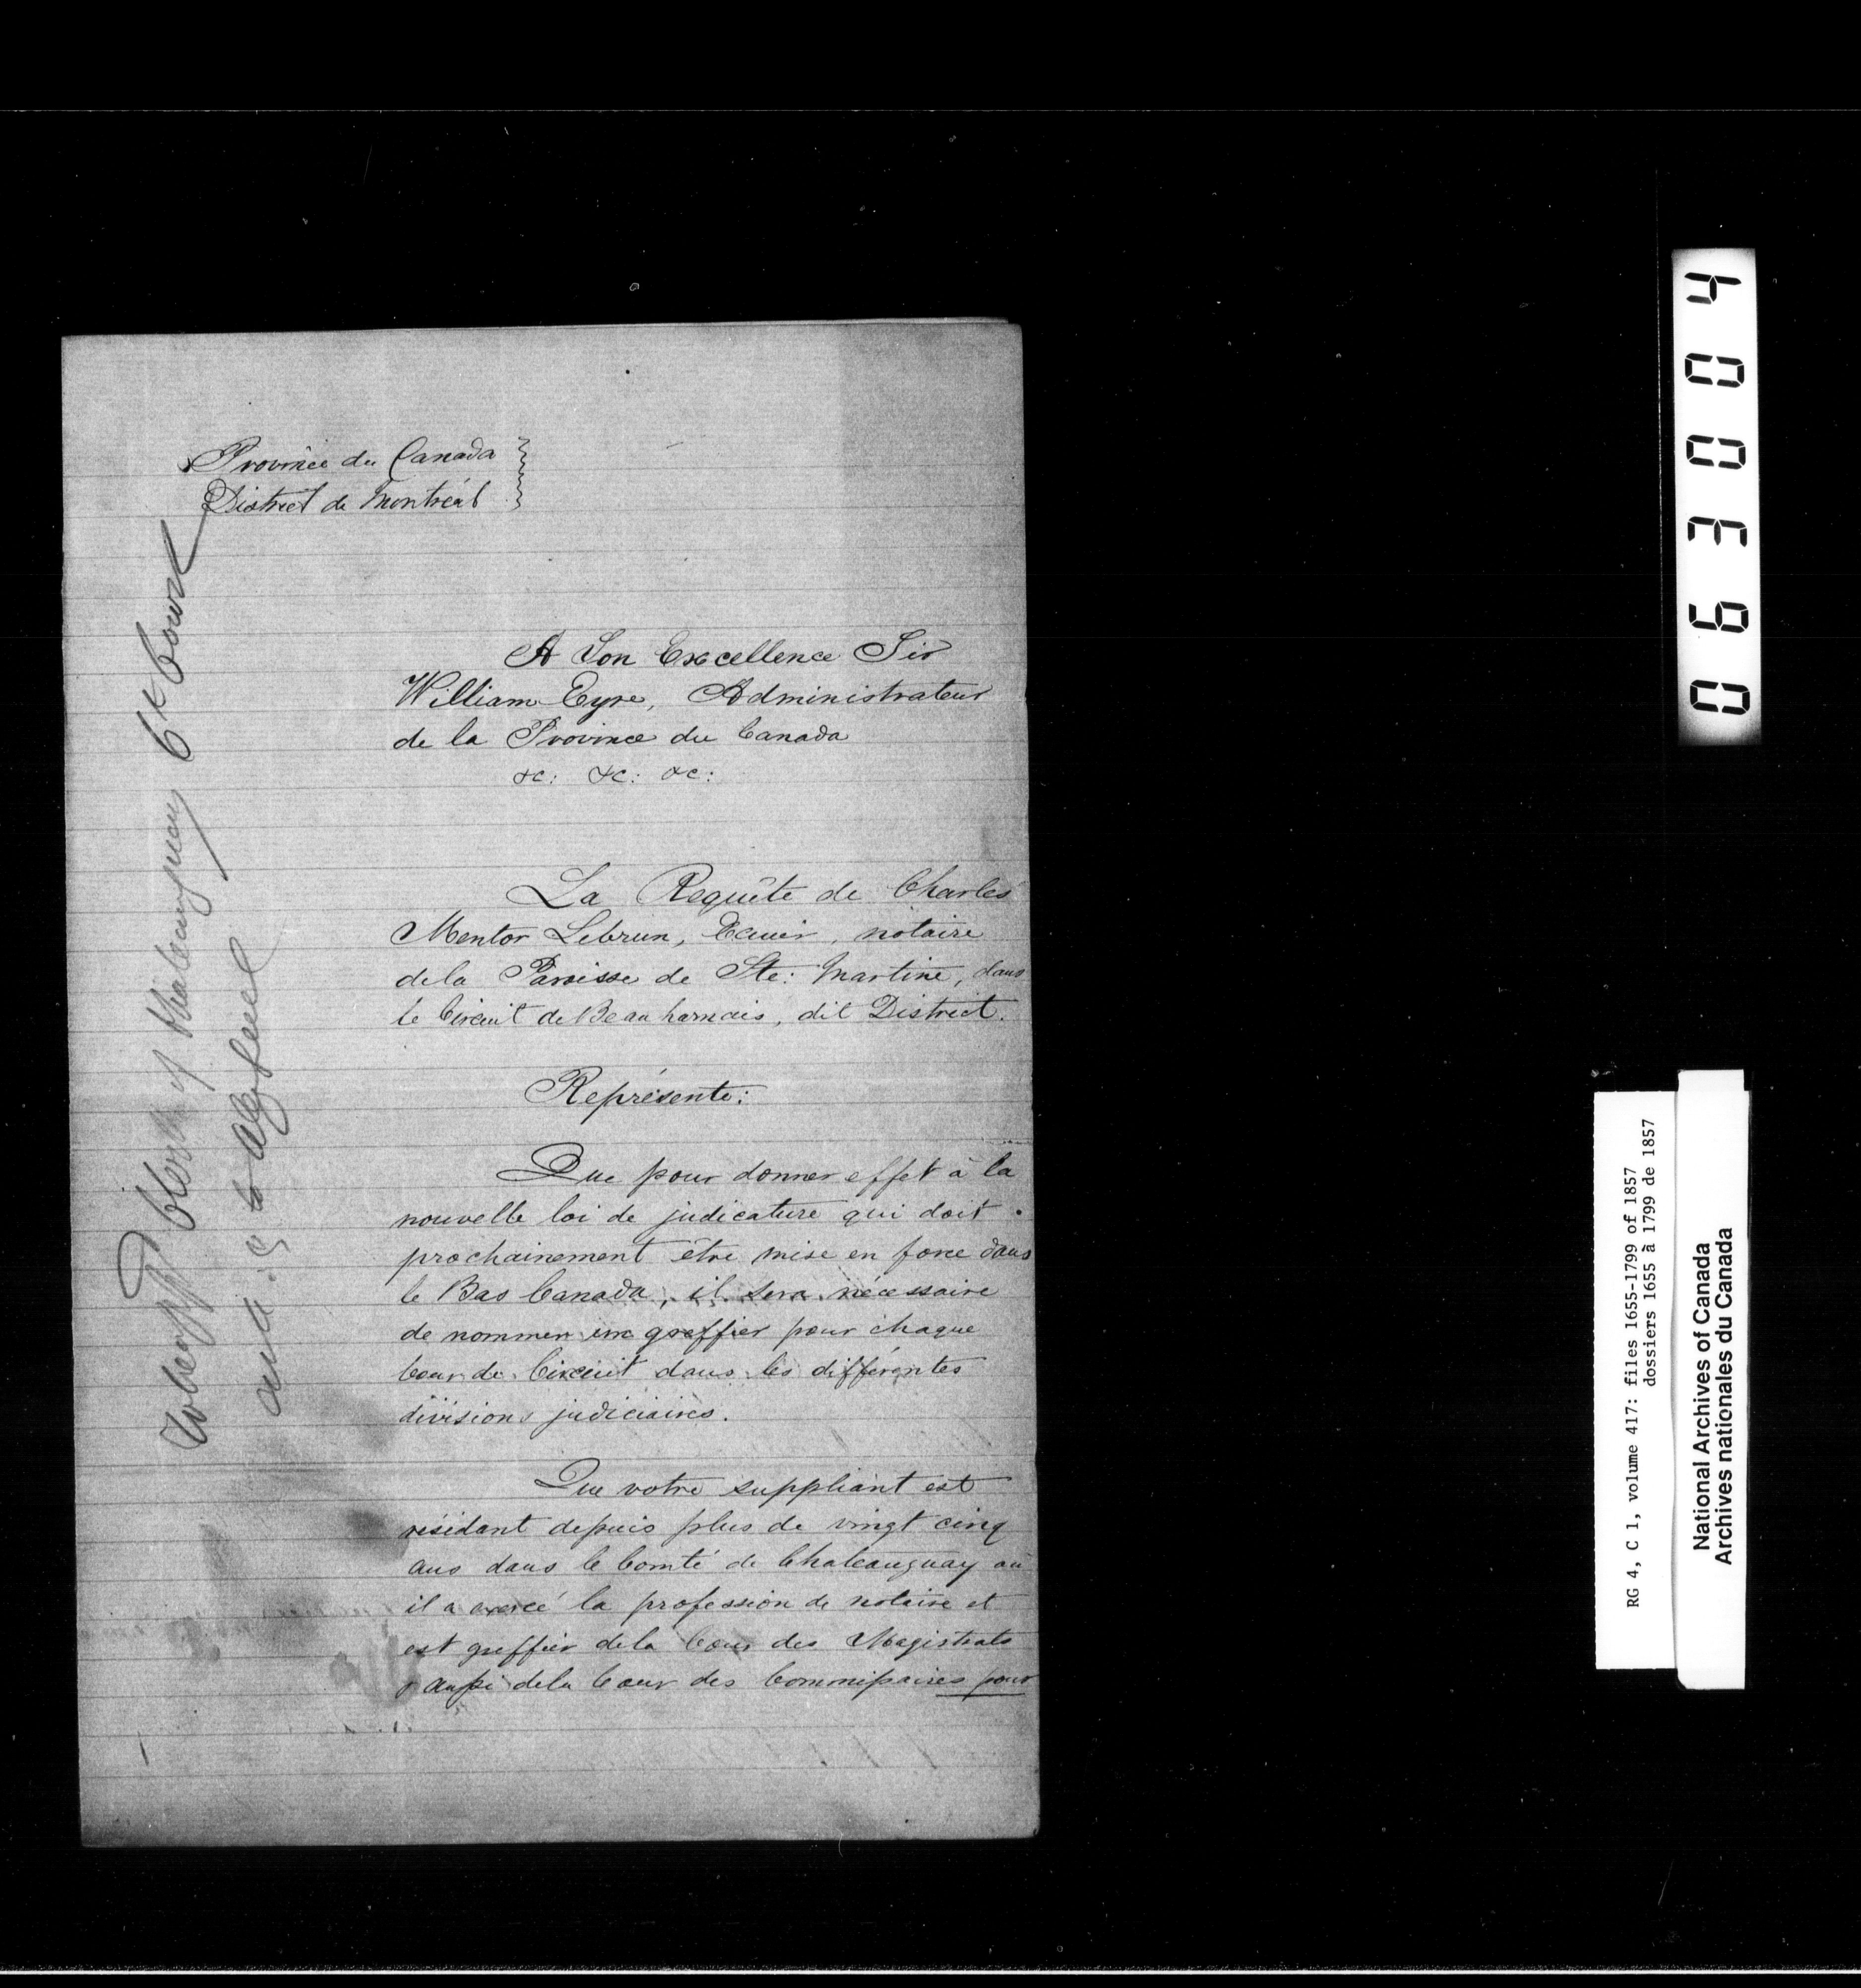 Province du Canada
District de Montréal
A Son Excellence Sir
William Eyre, Administrateur
de la Province du Canada
&c: &c: &c:
La Requête de Charles
Mentor Lebrun, Ecuier, notaire
de la Paroisse de Ste: Martine, dans
le Circuit de Beauharnais, dit District.
Représente:
Que pour donner effet à la
nouvelle loi de judicature qui doit
prochainement être mise en force dans
le Bas Canada, il sera nécessaire
de nommer un greffier pour chaque
Cour de Circuit dans les différentes
divisions judiciaires.
Que votre suppliant est
résidant depuis plus de vingt cinq
ans dans le Comté de Chateauguay où
il a exercé la profession de notaire et
est greffier de la Cour des Magistrats
& aussi de la Cour des Commissaires pour
To be appd Clerk of Chateauguay Ct Court
to
06304
RG 4, C 1, volume 417: files 1655-1799 of 1857
dossiers 1655 à 1799 de 1857
National Archives of Canada
Archives nationales du Canada